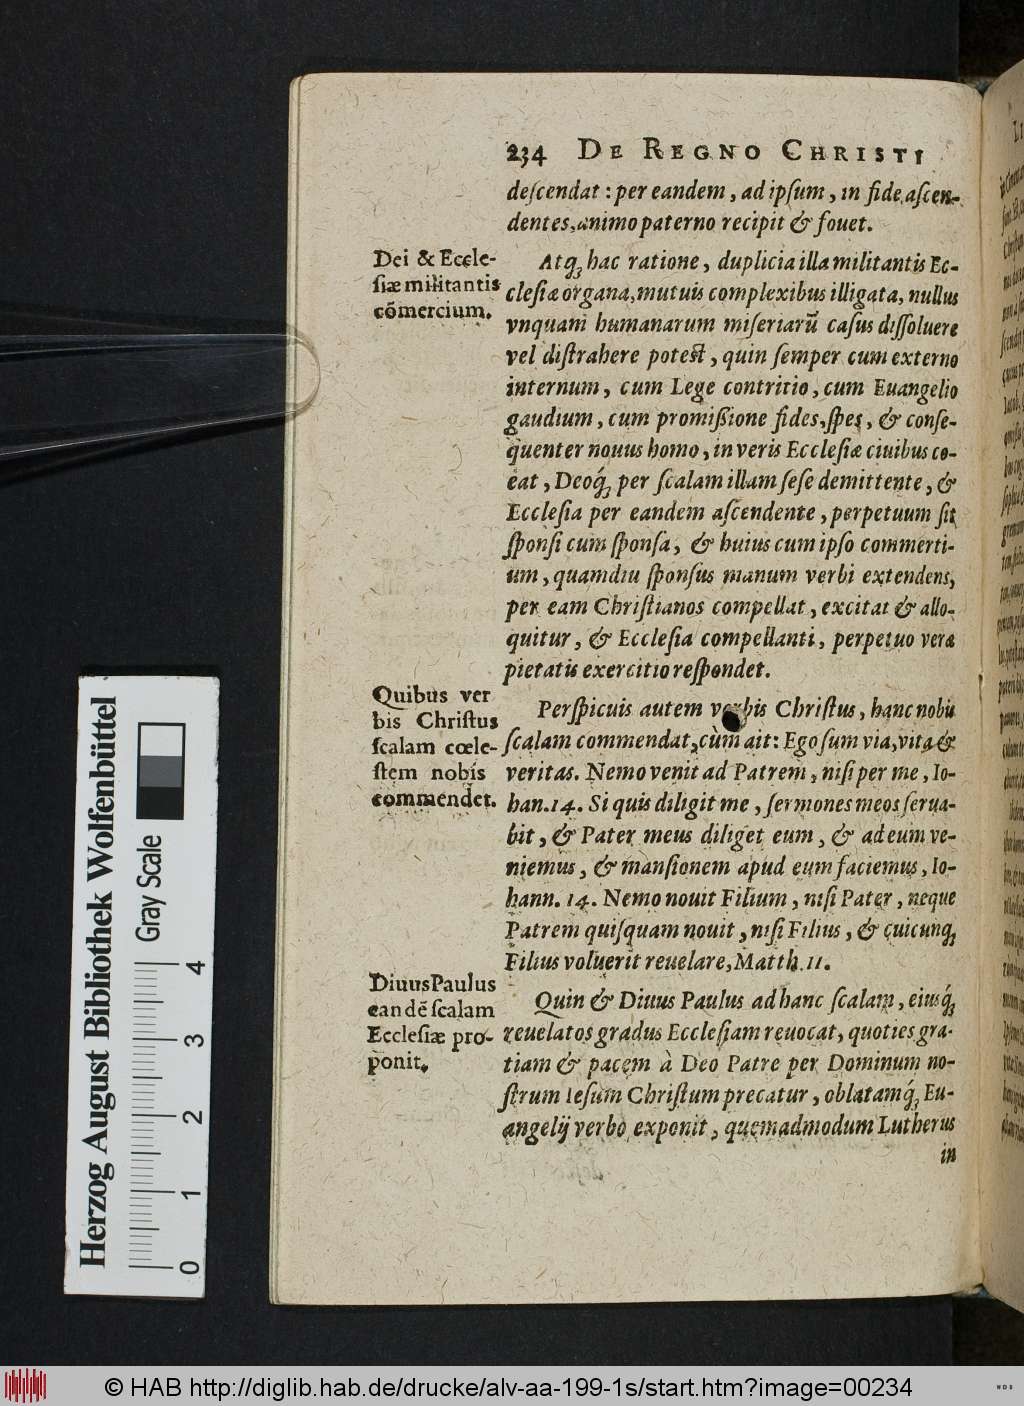 234 DE REGNO CHRISTI
deſcendat : per eandem, ad ipſum, in fide aſcen-
dentes, animo paterno recipit & fouet.
Dei & Eccle-
ſiæ militantis
cōmercium.
Atq́; hac ratione, duplicia illa militantis Ec-
cleſiæ organa, mutuis complexibus illigata, nullus
vnquam humanarum miſeriarū caſus diſſoluere
vel diſtrahere poteſt, quin ſemper cum externo
internum, cum Lege contritio, cum Euangelio
gaudium, cum promißione fides, ſpes, & conſe-
quenter nouus homo, in veris Eccleſiæ ciuibus co-
eat, Deoq́; per ſcalam illam ſeſe demittente, &
Eccleſia per eandem aſcendente, perpetuum ſit
ſponſi cum ſponſa, & huius cum ipſo commerti-
um, quamdiu ſponſus manum verbi extendens,
per eam Chriſtianos compellat, excitat & allo-
quitur, & Eccleſia compellanti, perpetuo veræ
pietatis exercitio reſpondet.
Quibus ver
bis Chriſtus
ſcalam cœle-
ſtem nobis
commendet.
Perſpicuis autem verbis Chriſtus, hanc nobis
ſcalam commendat, cùm ait: Ego ſum via, vita &
veritas. Nemo venit ad Patrem, niſi per me, Io-
han. 14. Si quis diligit me, ſermones meos ſerua-
bit, & Pater meus diliget eum, & ad eum ve-
niemus, & manſionem apud eum faciemus, Io-
hann. 14. Nemo nouit Filium, niſi Pater, neque
Patrem quiſquam nouit, niſi Filius, & cuicunq;
Filius voluerit reuelare, Matth. 11.
Diuus Paulus
eandē ſcalam
Eccleſiæ pro-
ponit.
Quin & Diuus Paulus ad hanc ſcalam, eiusq́;
reuelatos gradus Eccleſiam reuocat, quoties gra-
tiam & pacem à Deo Patre per Dominum no-
ſtrum Ieſum Chriſtum precatur, oblatamq́; Eu-
angelij verbo exponit, quemadmodum Lutherus
in
Herzog August Bibliothek Wolfenbüttel
Gray Scale
0 1 2 3 4
© HAB http://diglib.hab.de/drucke/alv-aa-199-1s/start.htm?image=00234